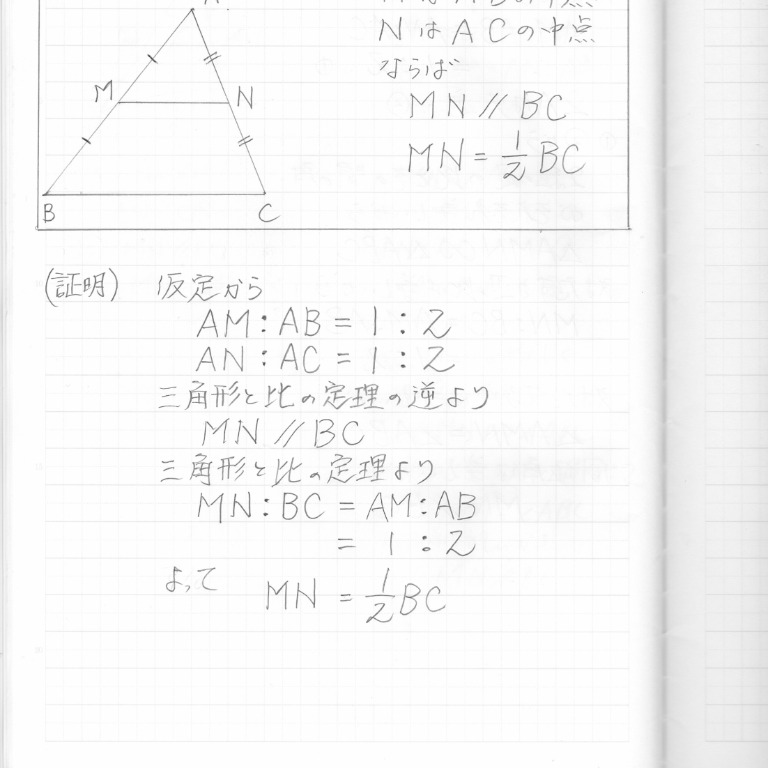 A
MはABの中点
NはACの中点
ならば
M N
MN // BC
MN = 1/2 BC
B C
(証明) 仮定から
AM : AB = 1 : 2
AN : AC = 1 : 2
三角形と比の定理の逆より
MN // BC
三角形と比の定理より
MN : BC = AM : AB
= 1 : 2
よって MN = 1/2 BC